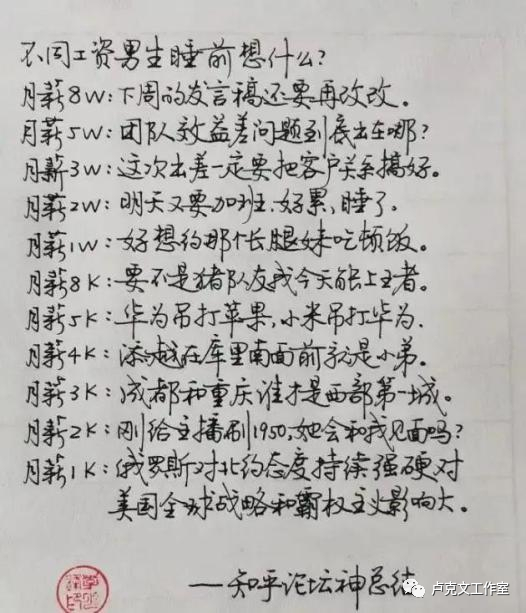 不同工资男生睡前想什么?
月薪8W:下周的发言稿还要再改改。
月薪5W:团队效益差问题到底出在哪?
月薪3W:这次出差一定要把客户关系搞好。
月薪2W:明天又要加班.好累,睡了.
月薪1W:好想约那个长腿妹吃顿饭。
月薪8K:要不是猪队友我今天能上王者。
月薪5K:华为吊打苹果,小米吊打华为.
月薪4K:添越在库里南面前就是小弟。
月薪3K:成都和重庆谁才是西部第一城。
月薪2K:刚给主播刷1950,她会和我见面吗?
月薪1K:俄罗斯对北约态度持续强硬对
美国全球战略和霸权主义影响大。
——知乎论坛神总结
卢克文工作室